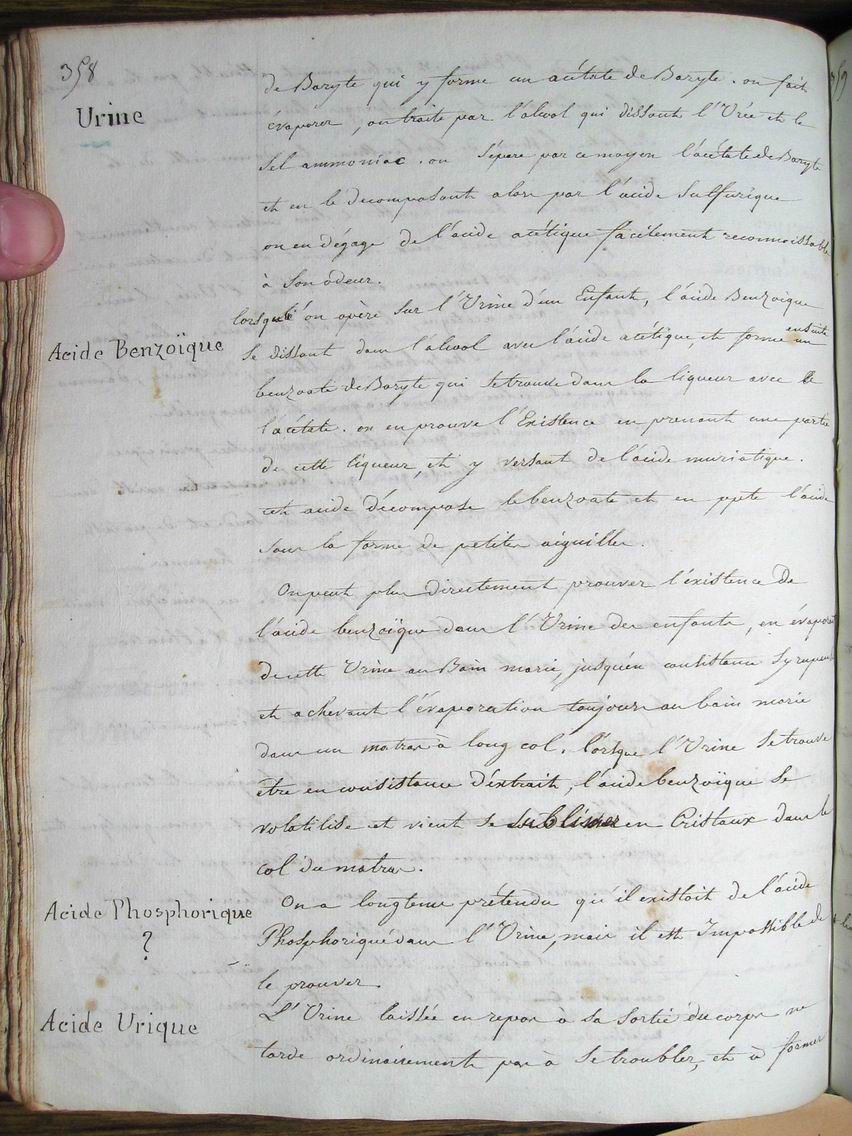 358
Urine
de Baryte qui y forme un acétate de Baryte. on fait
évaporer, on traite par l'alcool qui dissout l'Urée et le
sel ammoniac. on sépare par ce moyen l'acétate de Baryte
et en le decomposant alors par l'acide Sulfurique
on en dégage de l'acide acétique facilement reconnoissable
à son odeur.
lorsqu'on opère sur l'Urine d'un Enfant, l'acide Benzoïque
Acide Benzoïque
se dissout dans l'alcool avec l'acide acétique, et forme ensuite un
benzoate de Baryte qui se trouve dans la liqueur avec
l'acétate. on en prouve l'Existence en prenant une partie
de cette liqueur, et y versant de l'acide muriatique.
cet acide décompose le benzoate et en ppte l'acide
sous la forme de petites aiguilles.
On peut plus directement prouver l'existence De
l'acide benzoïque dans l'Urine des enfants, en évaporant
de cette Urine au Bain marie, jusqu'en consistance Syrupeuse
et achevant l'évaporation toujours au bain marie
dans un matras à long col. lorsque l'Urine se trouve
être en consistance d'extrait, l'acide benzoïque se
volatilise et vient se sublimer en Cristaux dans le
col du matras.
Acide Phosphorique
?
On a longtems prétendu qu'il existoit de l'acide
Phosphorique dans l'Urine, mais il est Impossible de
le prouver.
Acide Urique
L'Urine laissée en repos à sa sortie du corps ne
tarde ordinairement pas à se troubler, et à former